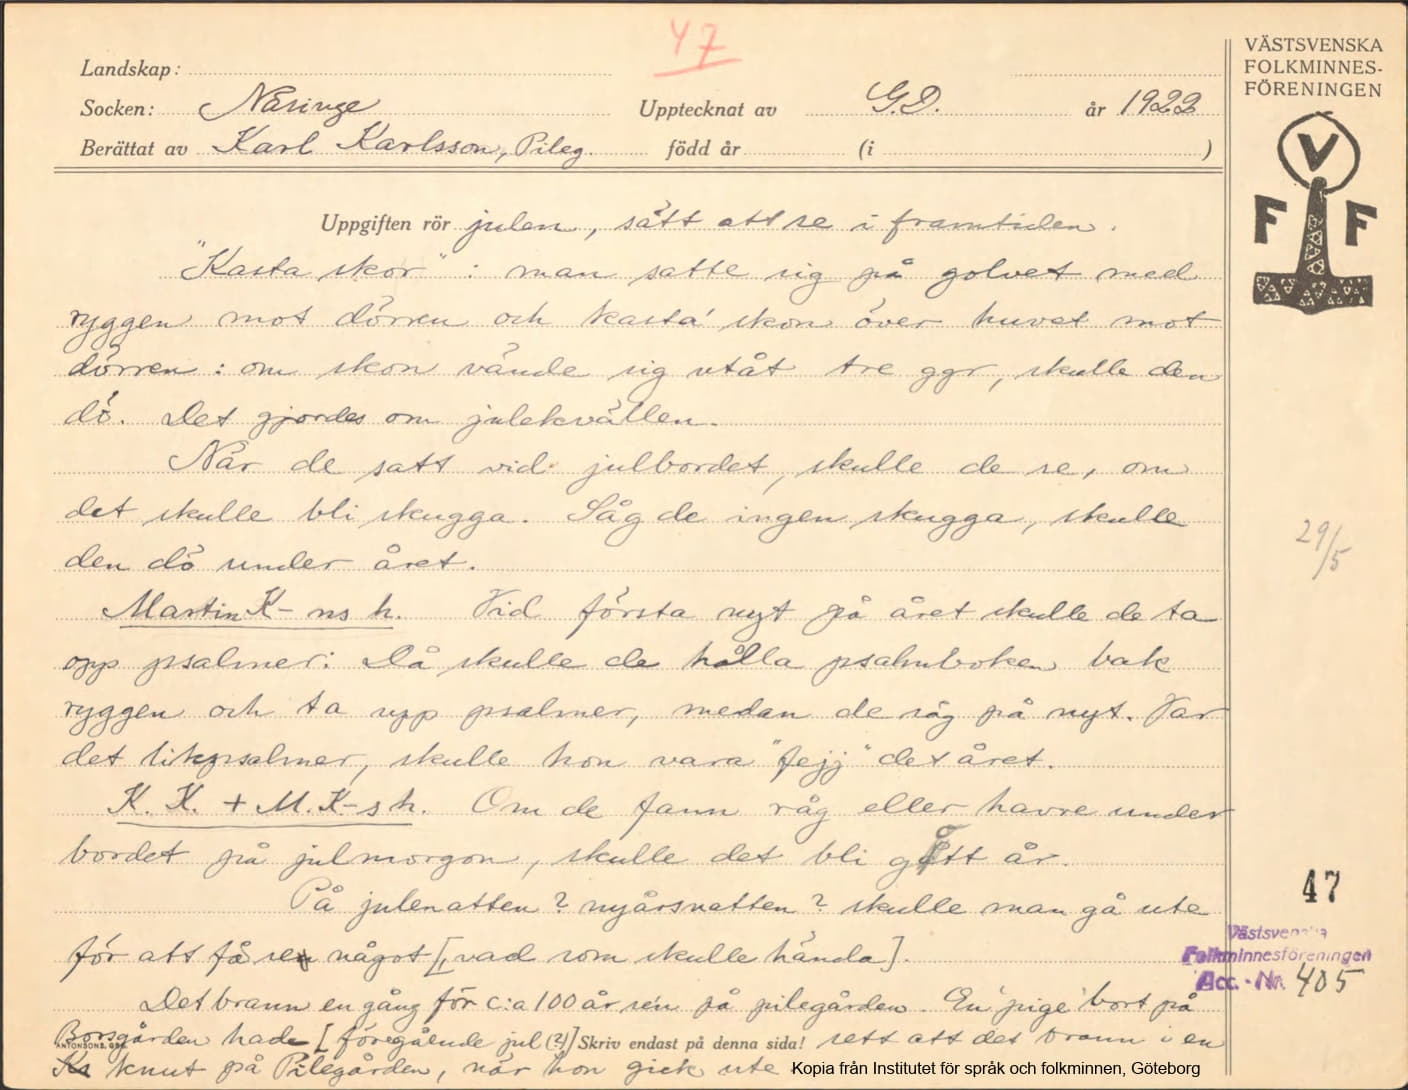 47
VÄSTSVENSKA
FOLKMINNES-
FÖRENINGEN
Landskap:
Socken: Näsinge Upptecknat av G.D. år 1922
Berättat av Karl Karlsson, Pileg. född år (i )
V
F F
Uppgiften rör julen, sätt att se i framtiden.
"Kasta skor": man satte sig på golvet med
ryggen mot dörren och kasta' skon över huvet mot
dörren: om skon vände sig utåt tre ggr, skulle den
dö. Det gjordes om julekvällen.
När de satt vid julbordet, skulle de se, om
det skulle bli skugga. Såg de ingen skugga, skulle
den dö under året.
29/5
Martin K-ns h. Vid första nyt på året skulle de ta
opp psalmer: Då skulle de hålla psalmboken bak
ryggen och ta upp psalmer, medan de såg på nyt. Var
det likpsalmer, skulle hon vara "fejj" det året.
K. K. + M. K-s h. Om de fann råg eller havre under
bordet på julmorgon, skulle det bli gått år.
47
På julenatten? nyårsnatten? skulle man gå ute
för att få se något [vad som skulle hända].
Västsvenska
Folkminnesföreningen
Acc.-Nr. 405
Det brann en gång för c:a 100 år se'n på pilegården. En pige bort på
Borsgården hade [föregående jul (?)] Skriv endast på denna sida! sett att det brann i en
ANTONSONS, GBG.
knut på Pilegården, när hon gick ute
Kopia från Institutet för språk och folkminnen, Göteborg